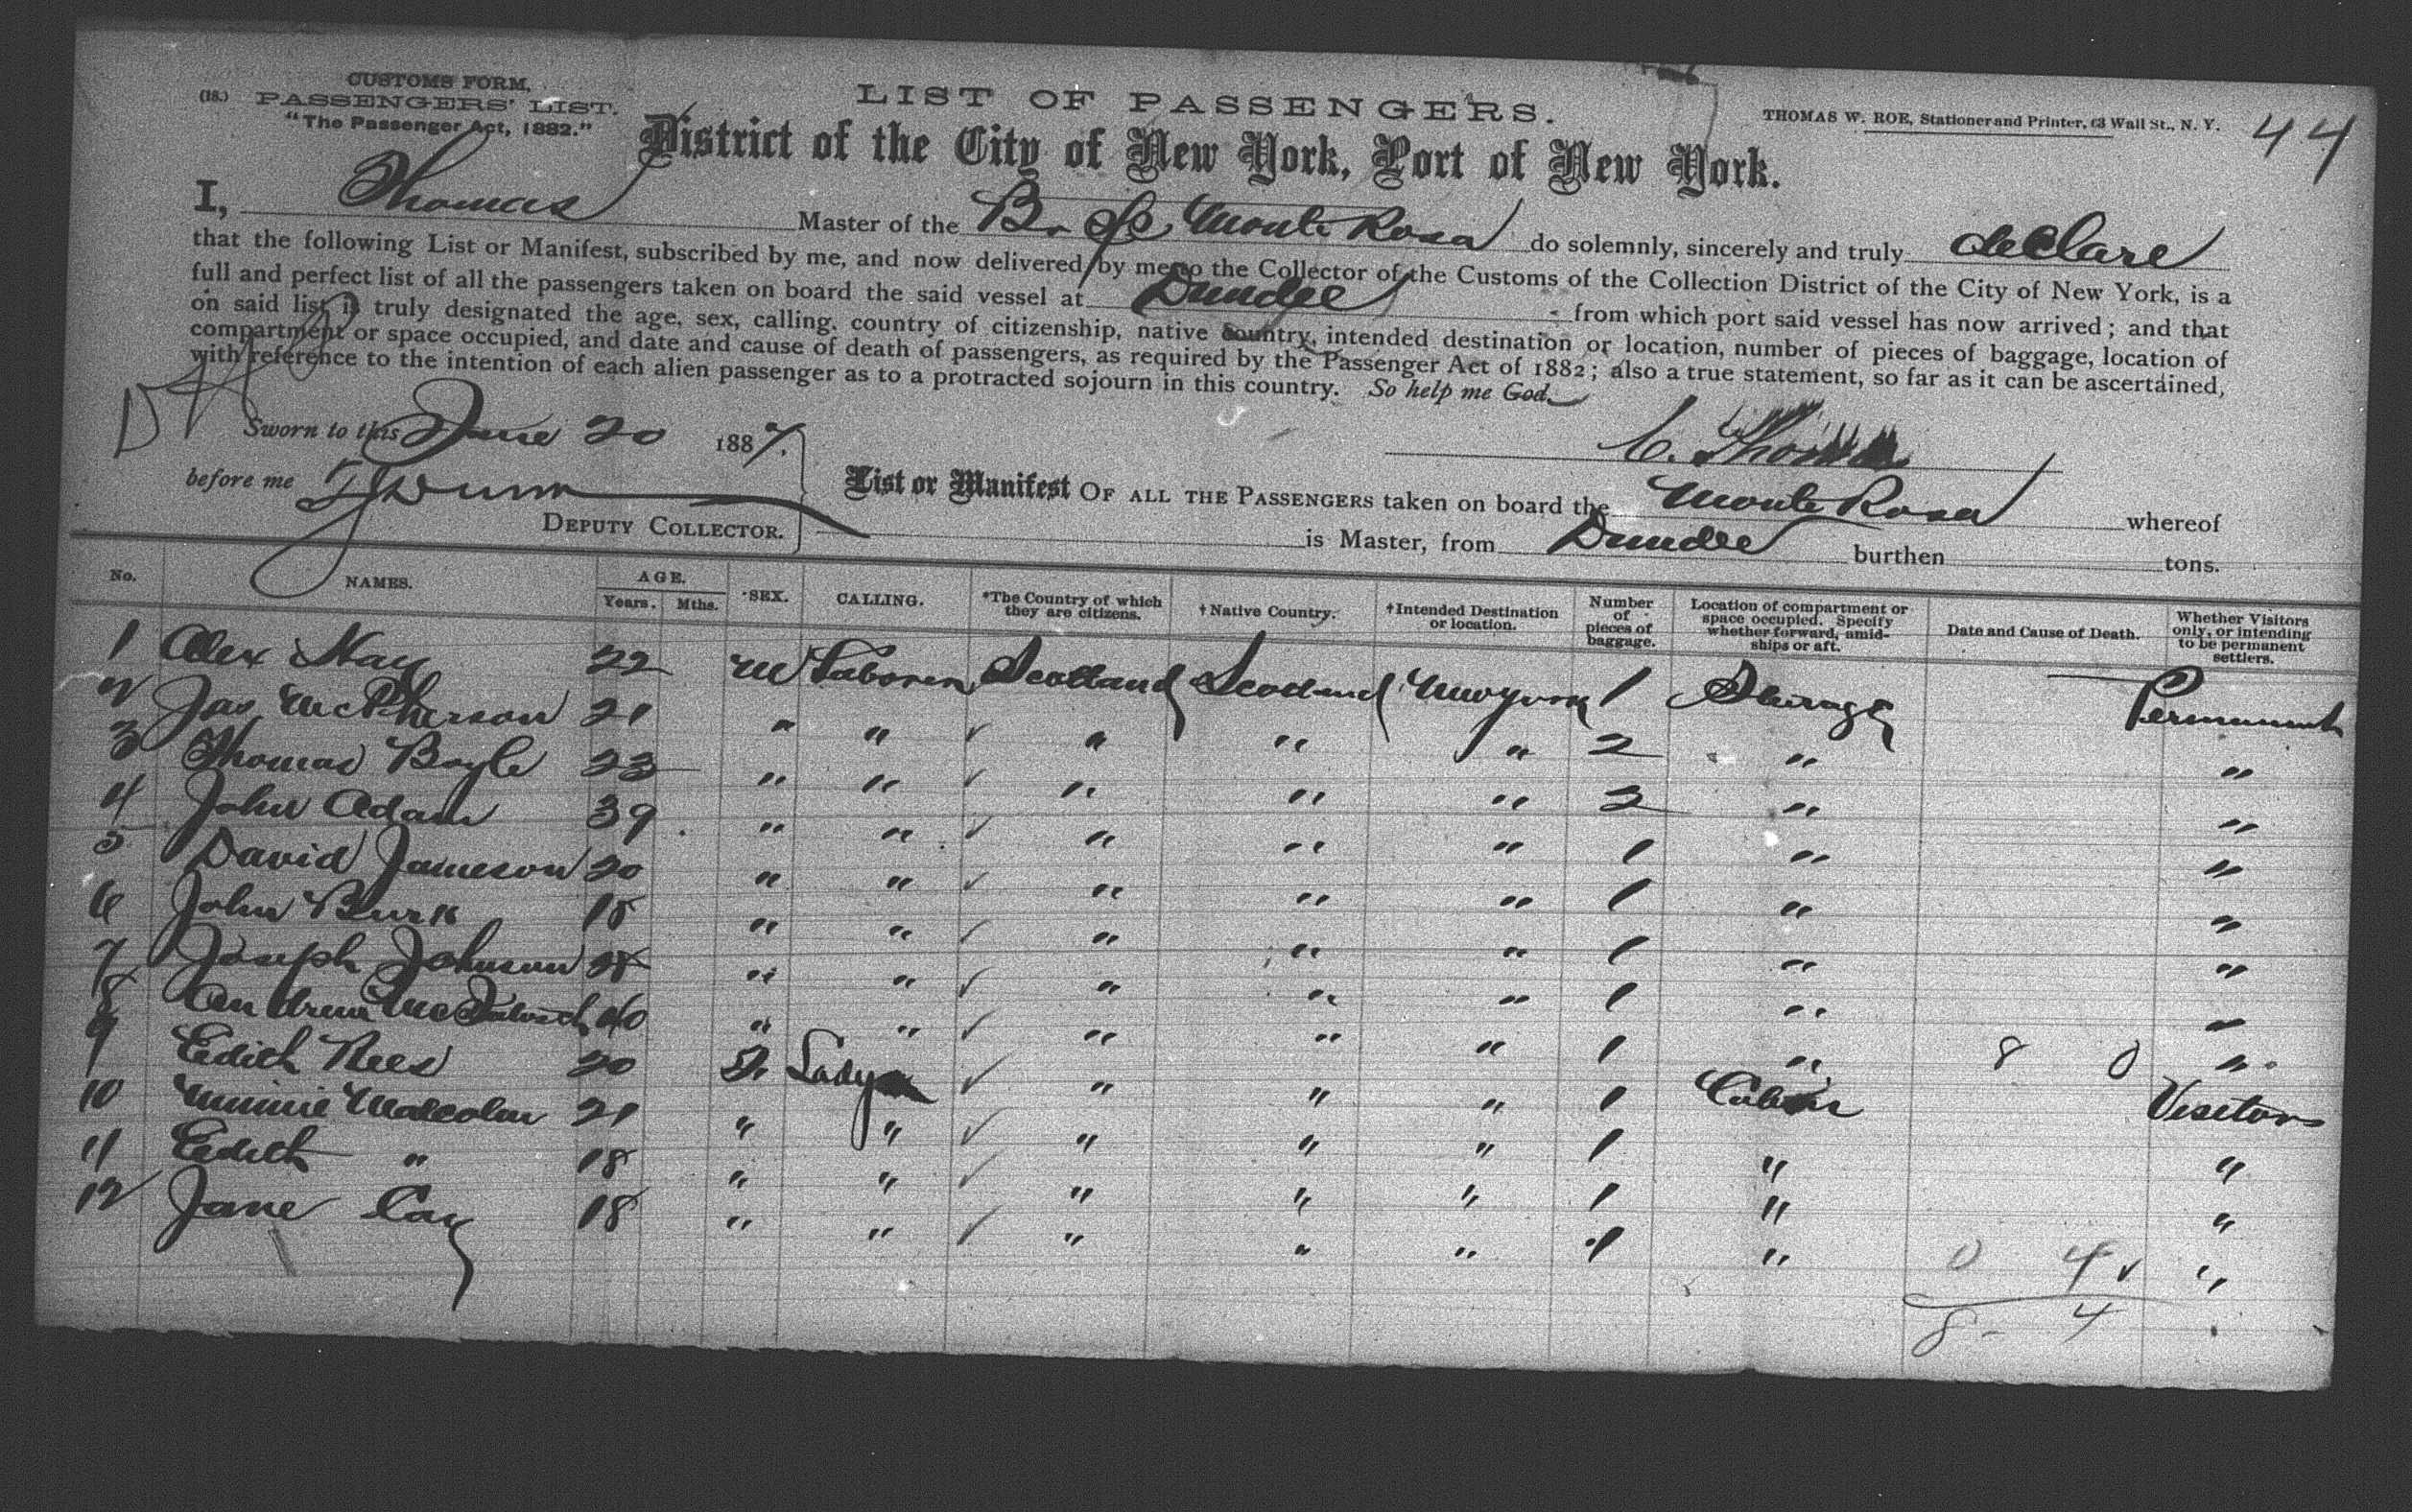 CUSTOMS FORM,
(18.) PASSENGERS' LIST.
"The Passenger Act, 1882."
LIST OF PASSENGERS.
THOMAS W. ROE, Stationer and Printer, 63 Wall St., N. Y.
44
District of the City of New York, Port of New York.
I, Thomas Master of the Br SS Monte Rosa do solemnly, sincerely and truly declare
that the following List or Manifest, subscribed by me, and now delivered by me to the Collector of the Customs of the Collection District of the City of New York, is a
full and perfect list of all the passengers taken on board the said vessel at Dundee from which port said vessel has now arrived; and that
on said list is truly designated the age, sex, calling, country of citizenship, native country, intended destination or location, number of pieces of baggage, location of
compartment or space occupied, and date and cause of death of passengers, as required by the Passenger Act of 1882; also a true statement, so far as it can be ascertained,
with reference to the intention of each alien passenger as to a protracted sojourn in this country. So help me God.
Sworn to this June 20 1887.
C. Thomas
before me
DEPUTY COLLECTOR.
List or Manifest OF ALL THE PASSENGERS taken on board the Monte Rosa whereof
is Master, from Dundee burthen tons.
No. NAMES. AGE. Years. Mths. SEX. CALLING. *The Country of which they are citizens. †Native Country. †Intended Destination or location. Number of pieces of baggage. Location of compartment or space occupied. Specify whether forward, amidships or aft. Date and Cause of Death. Whether Visitors only, or intending to be permanent settlers.
1 Alex Hay 22 M Laborer Scotland Scotland New York 1 Steerage Permanent
2 Jas McPherson 21 " " ✓ " " " 2 " "
3 Thomas Boyle 23 " " ✓ " " " 2 " "
4 John Adam 39 " " ✓ " " " 1 " "
5 David Jameson 20 " " ✓ " " " 1 " "
6 John Burk 18 " " ✓ " " " 1 " "
7 Joseph Johnson 28 " " ✓ " " " 1 " "
8 Andrew 40 " " ✓ " " " 1 " 8 0 "
9 Edith Rees 20 F. Lady ✓ " " " 1 Cabin Visitors
10 Minnie Malcolm 21 " " ✓ " " " 1 " "
11 Edith " 18 " " ✓ " " " 1 " "
12 Jane Cay 18 " " ✓ " " " 1 " 0 4 ✓ "
8 - 4